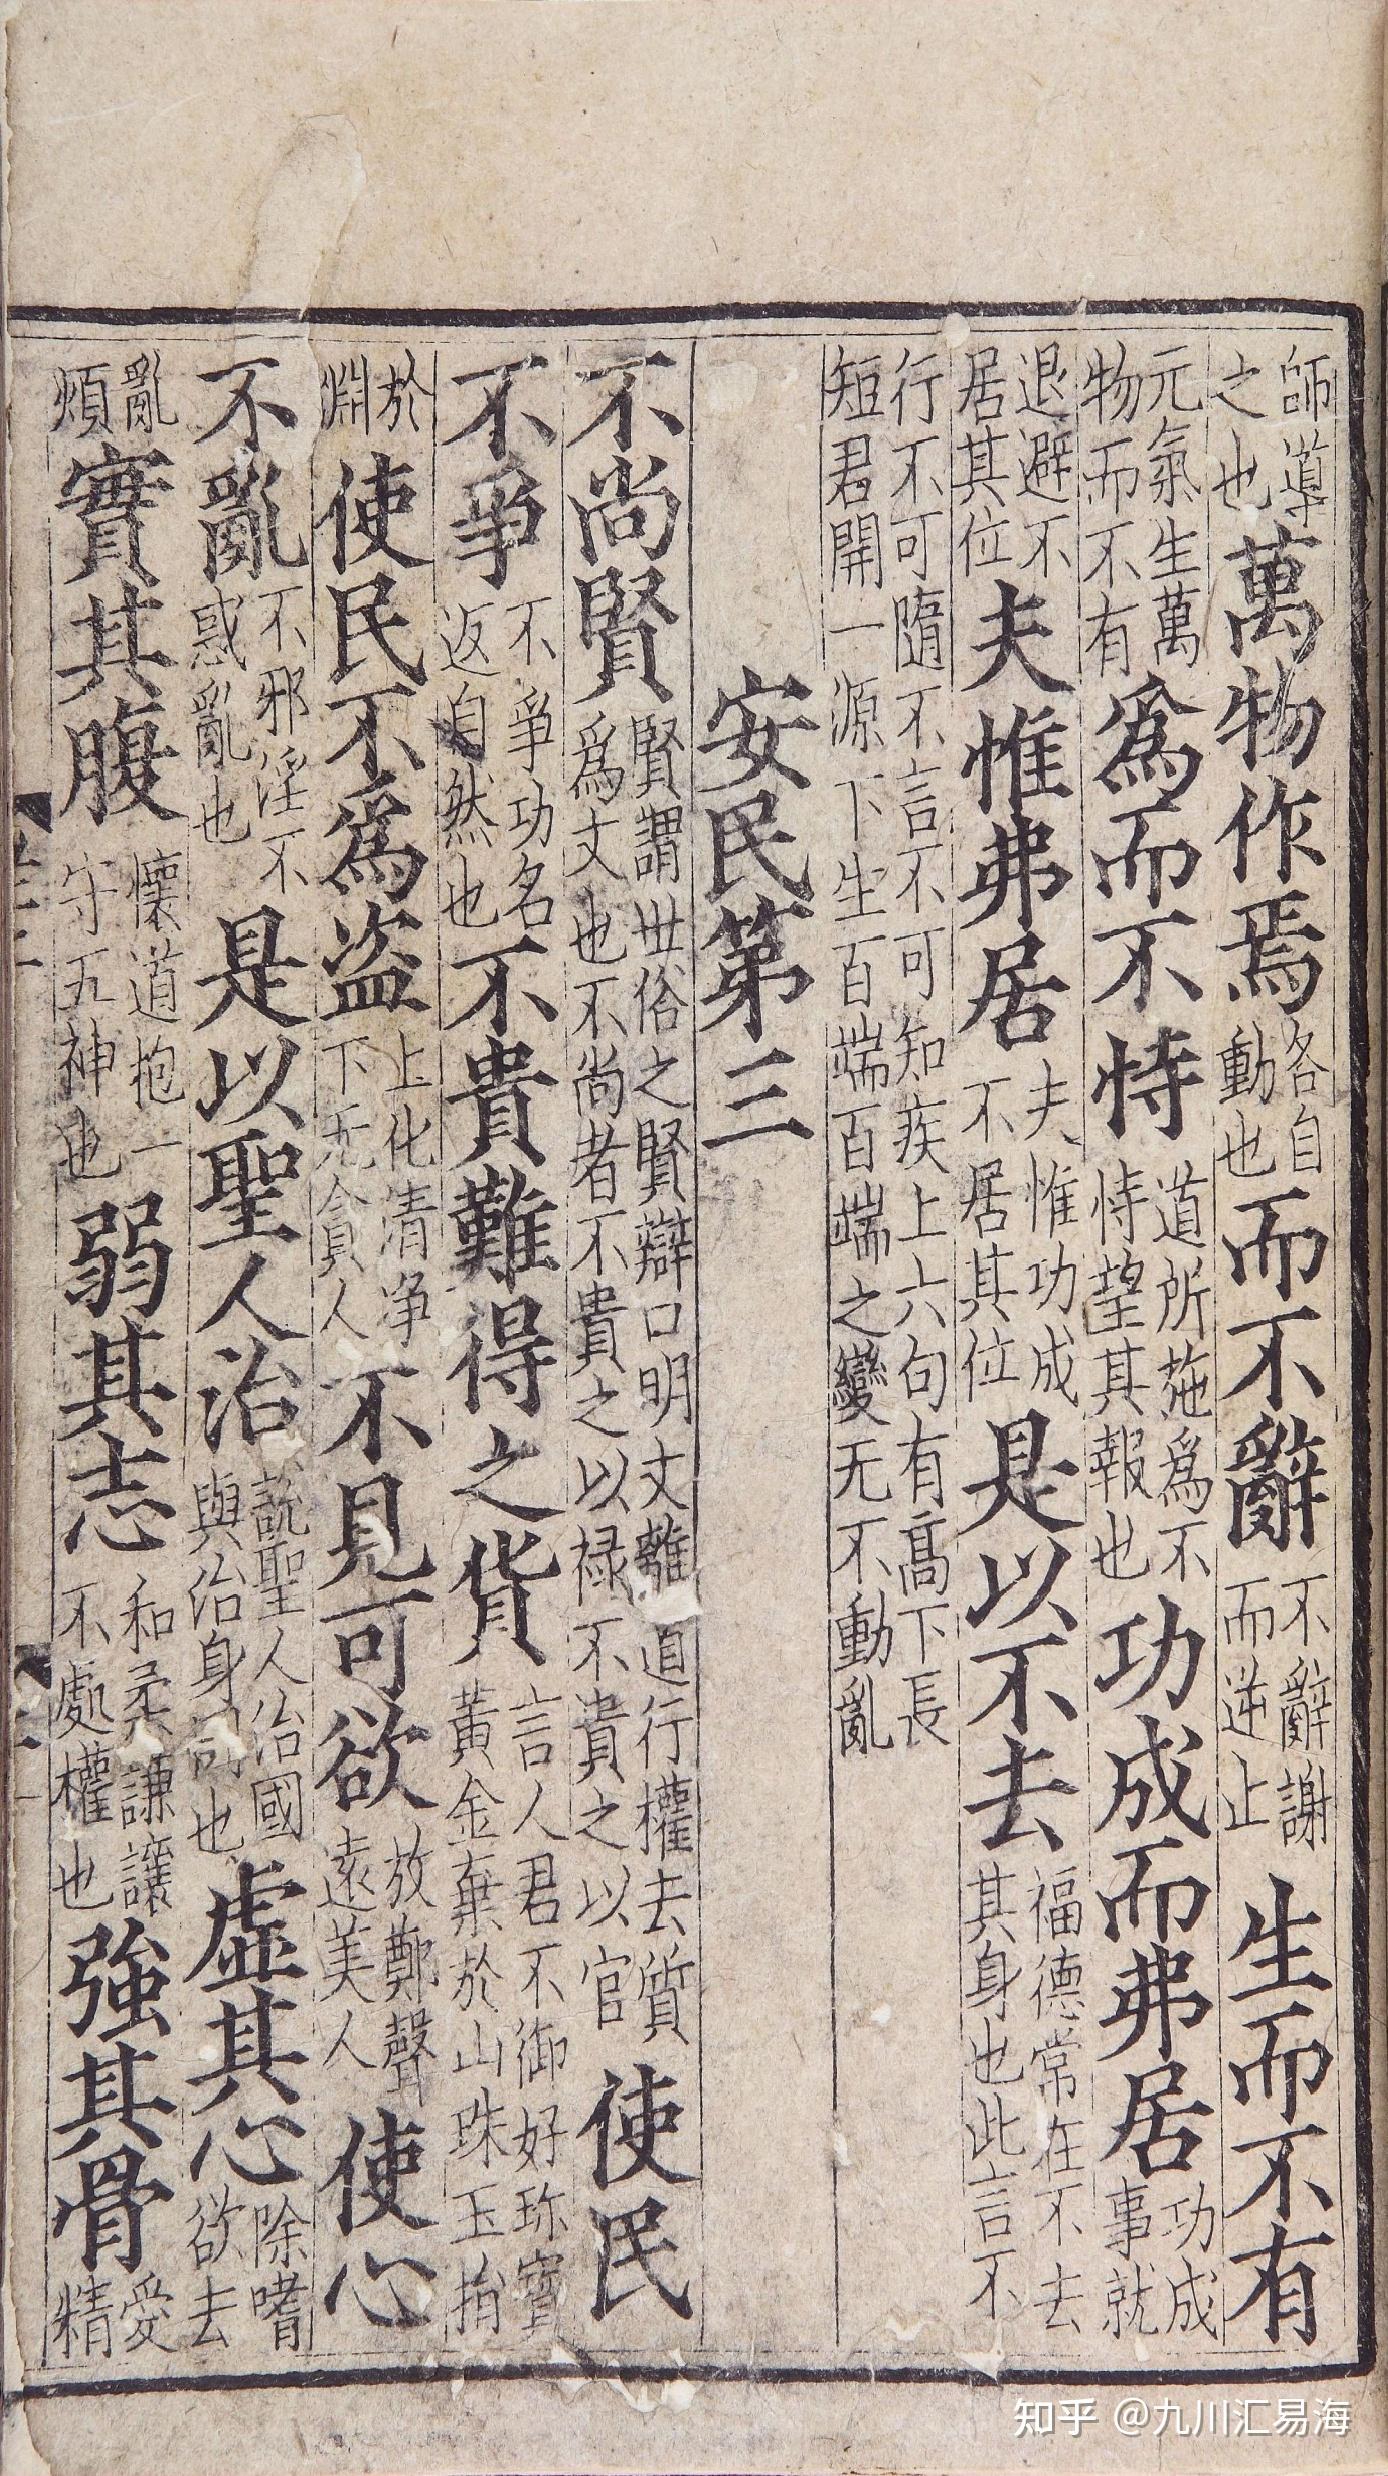 師導之也萬物作焉各自動也而不辭不辭謝而逆止生而不有
元氣生萬物而不有爲而不恃道所施爲不恃望其報也功成而弗居功成事就
退避不居其位夫惟弗居夫惟功成不居其位是以不去福德常在不去其身也此言不
行不可隨不言不可知疾上六句有高下長短君開一源下生百端百端之變无不動亂
安民第三
不尚賢賢謂世俗之賢辯口明文離道行權去質爲文也不尚者不貴之以禄不貴之以官使民
不爭不爭功名返自然也不貴難得之貨言人君不御好珎寶黃金棄於山珠玉捐
於淵使民不爲盜上化清净下无貪人不見可欲放鄭聲遠美人使心
不亂不邪淫不惑亂也是以聖人治說聖人治國與治身同也虛其心除嗜欲去
亂煩實其腹懷道抱一守五神也弱其志和柔謙讓不處權也強其骨愛精
知乎 @九川汇易海